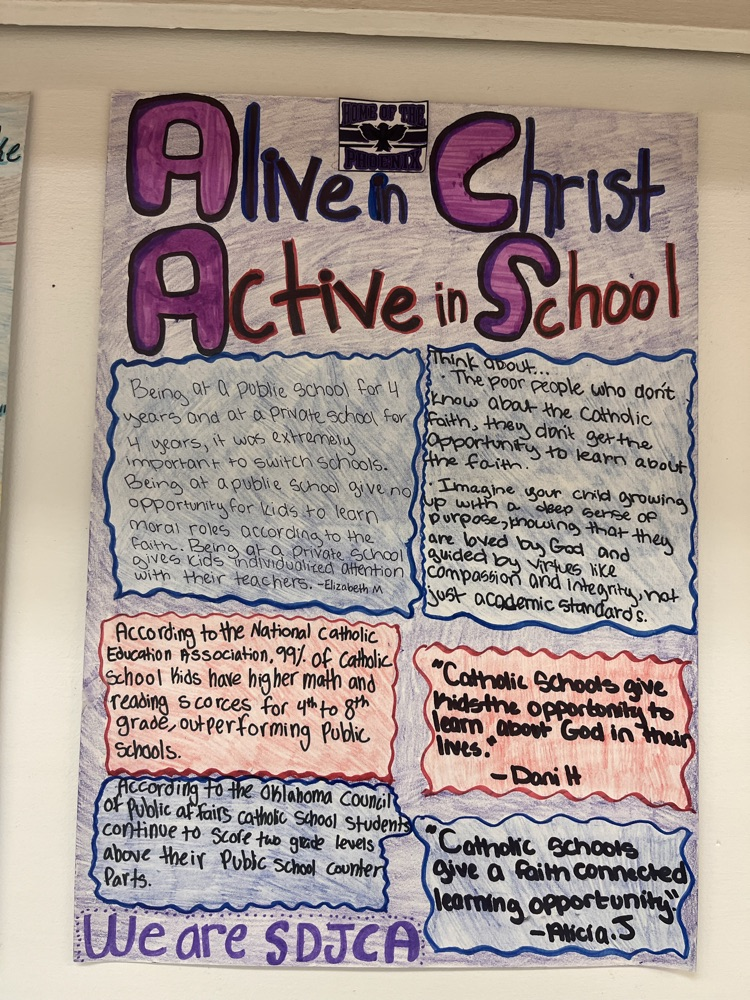 HOME OF THE
PHOENIX
Alive in Christ
Active in School
Being at a public school for 4
years and at a private school for
4 years, it was extremely
important to switch schools.
Being at a public school give no
opportunity for kids to learn
moral roles according to the
faith. Being at a private school
gives kids individualized attention
with their teachers. -Elizabeth M
Think about...
· The poor people who don't
know about the Catholic
faith, they don't get the
opportunity to learn about
the faith.
· Imagine your child growing
up with a deep sense of
purpose, knowing that they
are loved by God and
guided by virtues like
compassion and integrity, not
just academic standards.
According to the National Catholic
Education Association, 99% of Catholic
school kids have higher math and
reading scorces for 4th to 8th
grade, outperforming Public
schools.
"Catholic Schools give
kids the opportonity to
learn about God in their
lives."
- Dani H
According to the Oklahoma Council
of Public affairs catholic school students
continue to score two grade levels
above their Public School counter
Parts.
"Catholic schools
give a faith connected
learning opportunity"
-Alicia.J
We are SDJCA